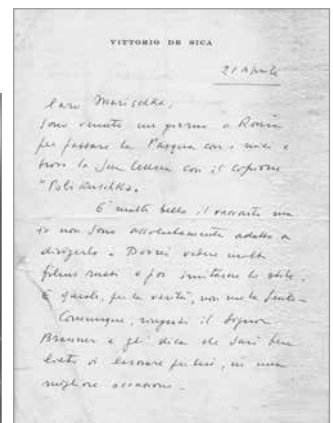 VITTORIO DE SICA
21 Aprile
Caro Marischka,
sono venuto un giorno a Roma
per passare la Pasqua con i miei e
trovo la Sua lettera con il copione
"Polikuschka.
È molto bello il racconto ma
io non sono assolutamente adatto a
dirigerlo. Dovrei vedere molti
films russi e poi imitarne lo stile.
E questo, per la verità, non me la sento.
Comunque, ringrazi il Signor
Brauner e gli dica che sarò ben
lieto di lavorare per lui, in una
migliore occasione.